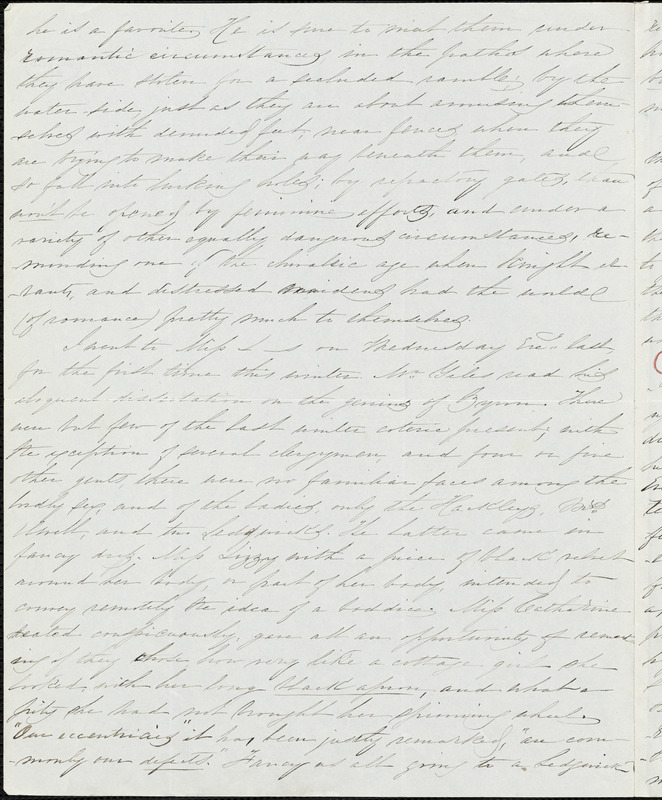 he is a favorite. He is sure to meet them under
romantic circumstances in the paths where
they have stolen for a secluded ramble; by the
water side just as they are about amusing them-
selves with denuded feet; near fences when they
are trying to make their way beneath them, and
so fall into lurking holes; by refractory gates,
won't be opened by feminine efforts, and under a
variety of other equally dangerous circumstances, re-
minding one of the chivalric age when Knight er-
rants, and distressed maidens had the world
(of romance) pretty much to themselves.
I went to Miss L—s on Wednesday Eve last
for the first time this winter. Mr. read his
eloquent dissertation on the genius of Byron. There
were but few of the last winter coterie present; with
the exception of several clergymen, and four or five
other gents, there were no familiar faces among the
lordly sex, and of the ladies, only the Hackleys,
and two Sedgwicks. The latter came in
fancy dress. Miss Lizzy with a piece of black velvet
around her body, or part of her body, intended to
convey remotely the idea of a boddice. Miss Catharine
seated conspicuously, gave all an opportunity of remark-
ing if they chose how very like a cottage girl she
looked with her long black apron, and what a
pity she had not brought her spinning wheel.
"Our eccentricities" it has been justly remarked, "are com-
monly our defects." Fancy us all going to a Sedgwick